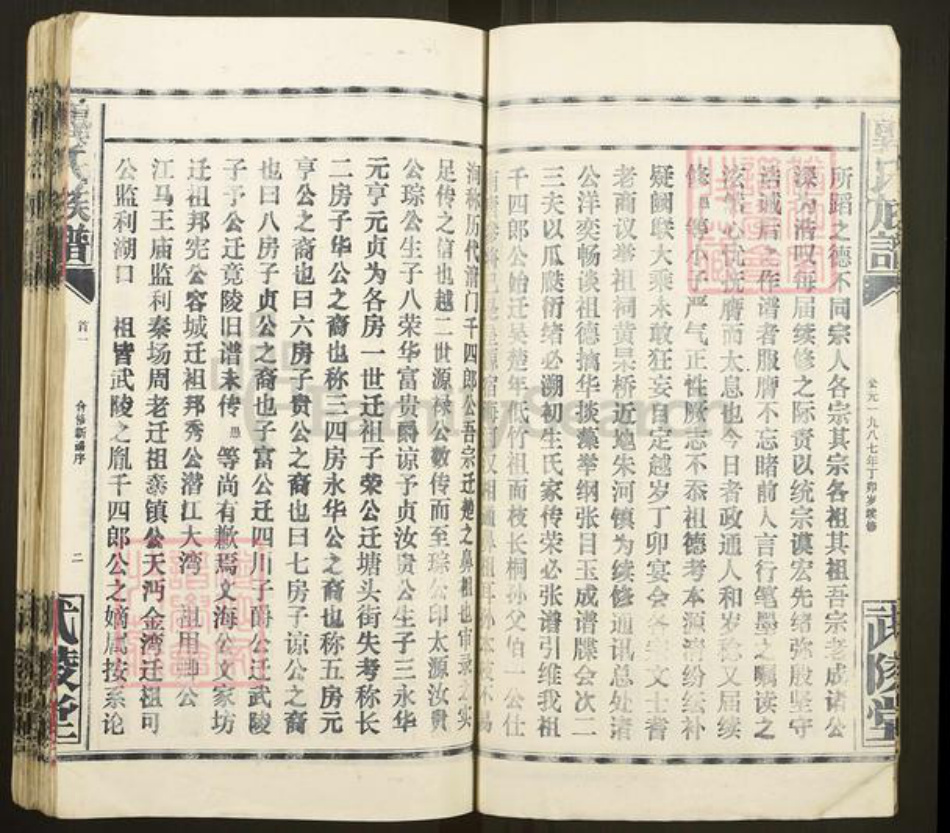 公元一九八七年丁卯岁续修
武陵堂
所蹈之德不同宗人各宗其宗各祖其祖吾宗老成诸公
深为浩叹每届续修之际责以统宗谟宏先绪弥殷坚守
诰诚启之作谱者服膺不忘睹前人言行笔墨之嘱读之
而太息也今日者政通人和岁稔又届续
修 等小子严气正性厥志不忝祖德考本源 纷纭补
疑阙联大乘未敢狂妄自定越岁丁卯宴会各宗文士耆
老商议举祖祠黄杲桥近地朱河镇为续修通讯总处诸
公洋奕畅谈祖德摛华掞藻举纲张目玉成谱牒会次二
三夫以瓜瓞衍绪必溯初生氏家传荣必张谱引维我祖
千四郎公始迁吴楚年低竹祖而枝长桐孙父伯一公仕
海称历代清门千四郎公吾宗迁楚之鼻祖也审录之实
足传之信也越二世源禄公数传而至琮公印太源汝贵
公琮公生子八荣华富贵爵谅予贞汝贵公生子三永华
元亨元贞为各房一世迁祖子荣公迁塘头街失考称长
二房子华公之裔也称三四房永华公之裔也称五房元
亨公之裔也曰六房子贵公之裔也曰七房子谅公之裔
也曰八房子贞公之裔也子富公迁四川子爵公迁武陵
子予公迁竟陵旧谱未传愚等尚有歉焉文海公文家坊
迁祖邦宪公容城迁祖邦秀公潜江大湾 祖用 公
江马王庙监利秦场周老迁祖 镇公天沔金湾迁祖可
公监利潮口 祖皆武陵之胤千四郎公之嫡属按系论
氏族谱
首一
合修新谱序
二
武陵堂
FamilySearch